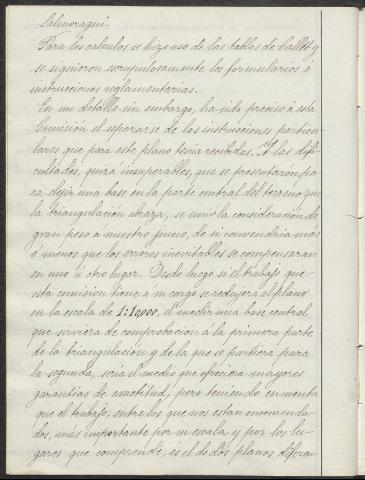 Salmoraqui.
Para los calculos se hizo uso de las tablas de Callet y
se siguieron escrupulosamente los formularios é
instrucciones reglamentarias.
En un detalle sin embargo, ha sido preciso á esta
Comisión el separarse de las instrucciones particu-
lares que para este plano tenia recibidas. A las difi-
cultades, quizá insuperables, que se presentaron pa-
ra elejir una base en la parte central del terreno que
la triangulación abraza, se unió la consideración de
gran peso á nuestro juicio, de si convendria más
ó menos que los errores inevitables se compensaran
en uno ú otro lugar. Desde luego si el trabajo que
esta comisión tiene á su cargo se redujera al plano
en la escala de 1:10,000, el medir una base central
que sirviera de comprobación á la primera parte
de la triangulación y de la que se partiera para
la segunda, seria el medio que ofreciera mayores
garantias de exactitud, pero teniendo en cuenta
que el trabajo, entre los que nos estan encomenda-
dos, más importante por su escala y por los lu-
gares que comprende, es el de dos planos diferen-